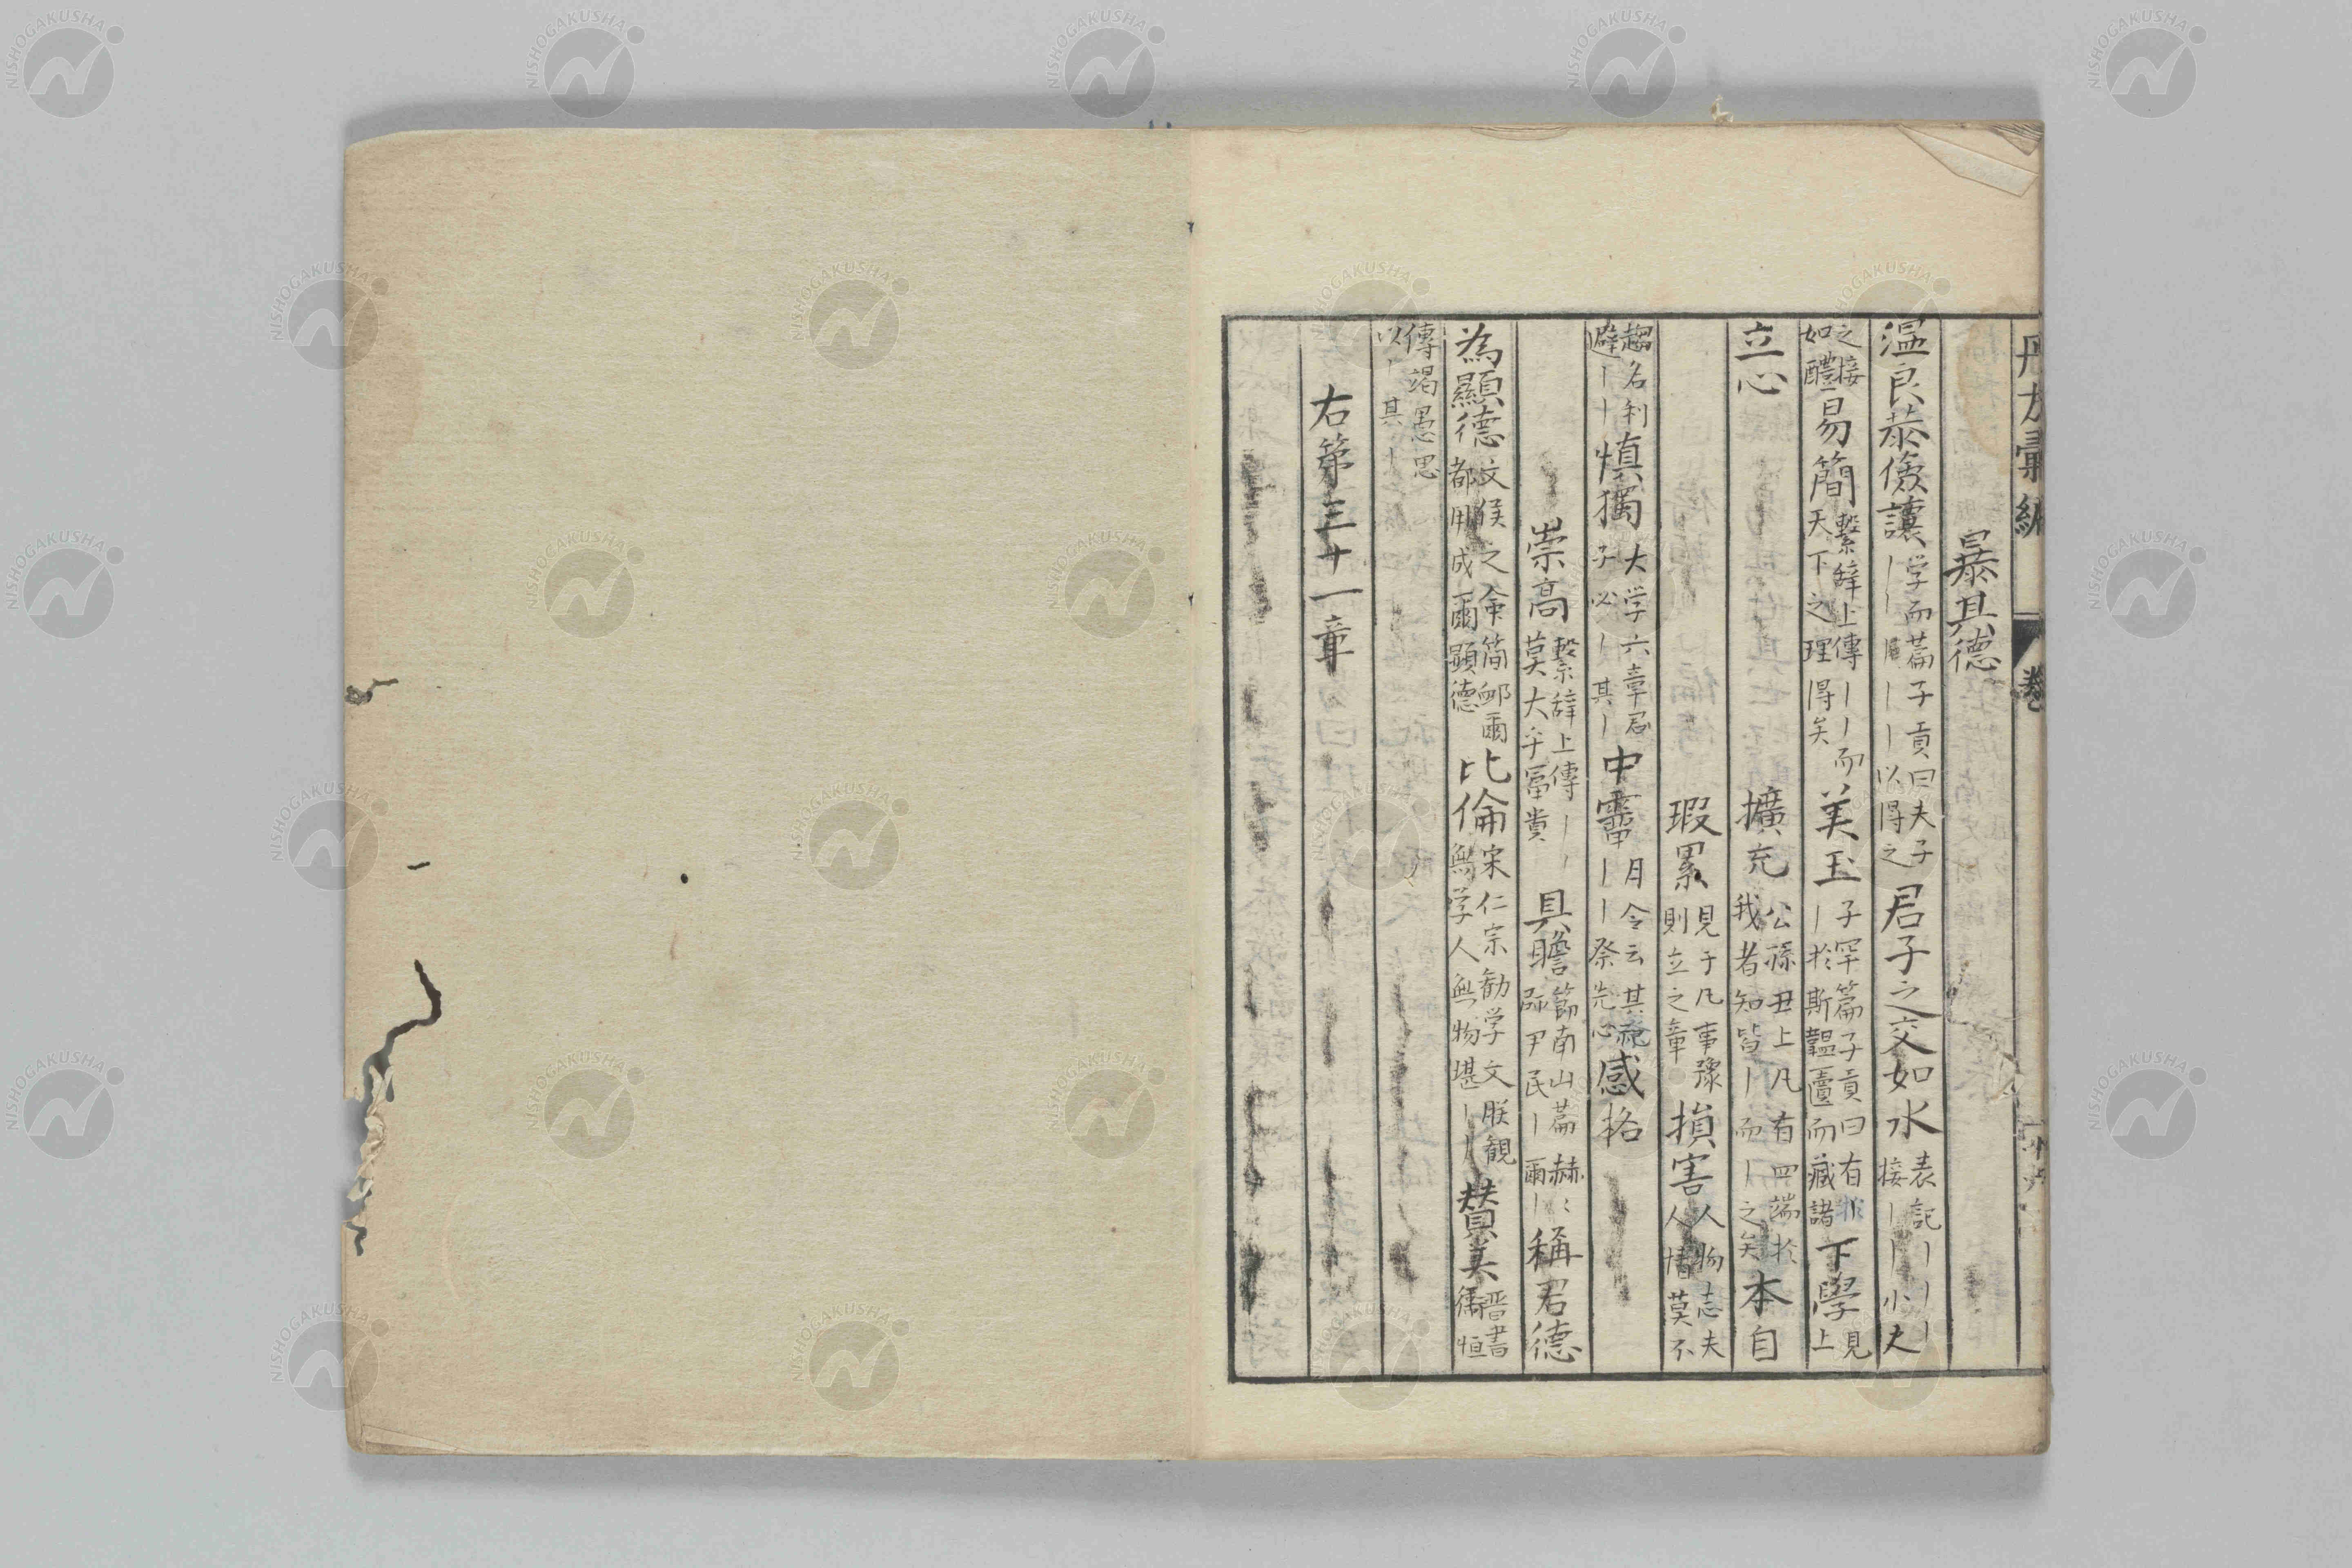 㬥其德
温良恭儉讓 学而篇子貢曰夫子｜｜｜｜｜以得之 君子之交如水 表記｜｜｜｜接｜｜｜小大
之接如醴 易簡 繫辞上傳｜｜而天下之理得矣 美玉 子罕篇子貢曰有｜｜於斯韞匵而藏諸 下學 見上
立心 擴充 公孫丑上凡有四端於我者知皆｜而｜之矣 本自
瑕累 見于凡事豫則立之章 損害 人物志夫人情莫不
趨名利避｜｜ 慎獨 大学六章君子必｜其｜ 中霤 月令云其祀｜｜祭先心 感格
崇高 繫辞上傳｜｜莫大乎冨貴 具瞻 節南山篇赫〻師尹民｜爾｜ 稱君德
為顯德 文侯之命簡卹爾都用成爾顕德 比倫 宋仁宗勧学文朕観無学人無物堪｜｜ 賛美 晋書衛恒
傳竭愚思以｜其｜
右第三十一章